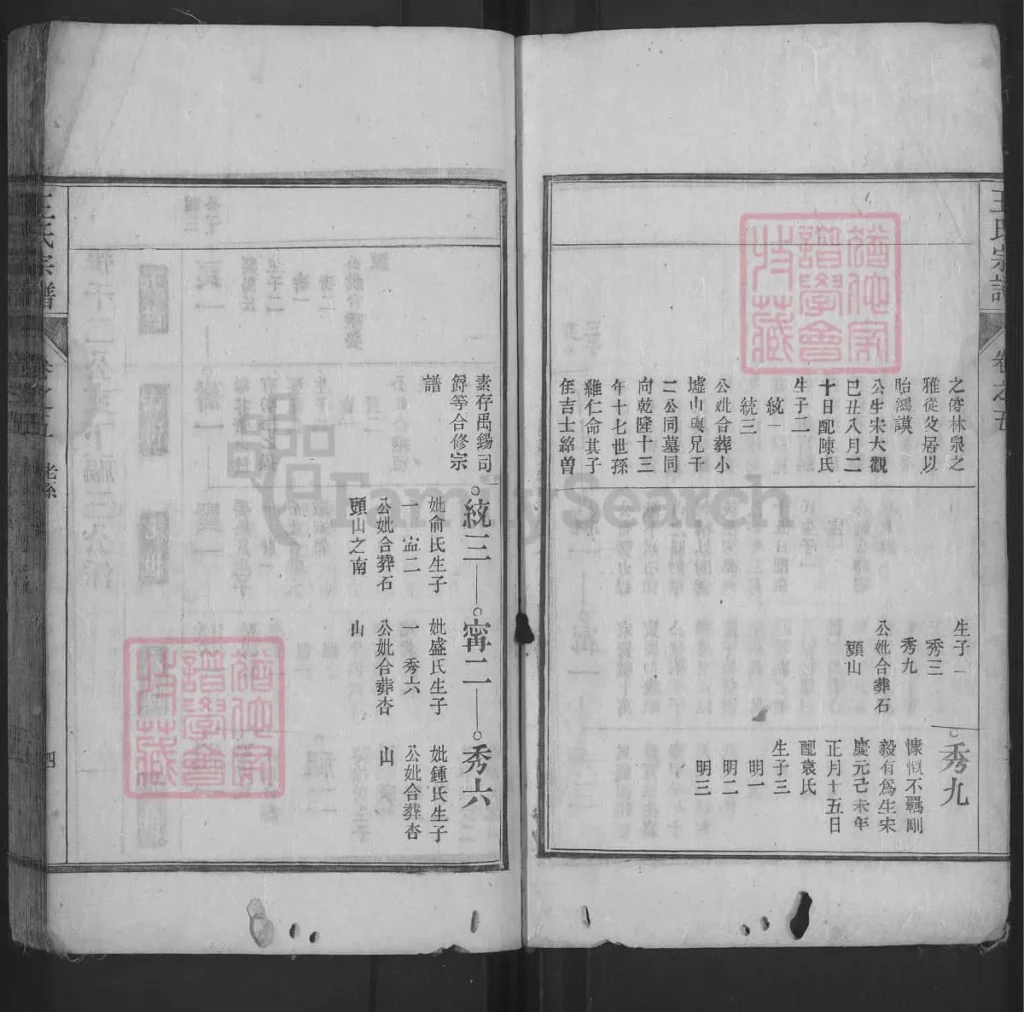 王氏宗譜
卷之五
之侉林泉之
雅從叏居以
貽鴻謨
公生宋大觀
已丑八月二
十日配陳氏
生子二
統一
統三
公妣合葬小
墟山與兄千
二公同墓同
向乾隆十三
年十七世孫
維仁命其子
侄吉士絡曽
素存禹錫司
錞等合修宗
譜
生子二
秀三
秀九
公妣合葬石
頭山
秀九
慷慨不羈剛
毅有爲生宋
慶元己未年
正月十五日
配袁氏
生子三
明一
明二
明三
統三
妣俞氏生子
一 寗二
公妣合葬石
頭山之南
寗二
妣盛氏生子
一 秀六
公妣合葬杏
山
秀六
妣鍾氏生子
公妣合葬杏
山
王氏宗譜
卷之五
四
猶他家譜學會收藏
猶他家譜學會收藏
FamilySearch